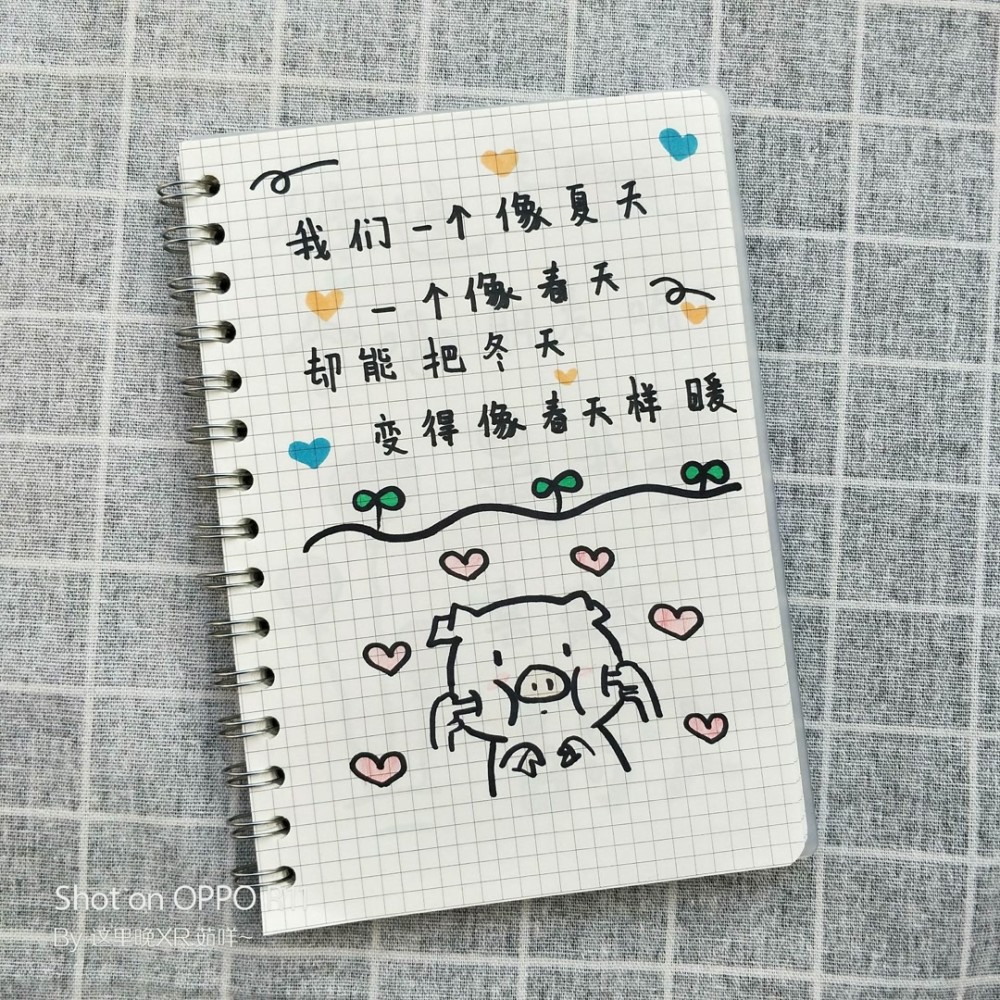 我们一个像夏天
一个像春天
却能把冬天
变得像春天样暖
Shot on OPPO
By